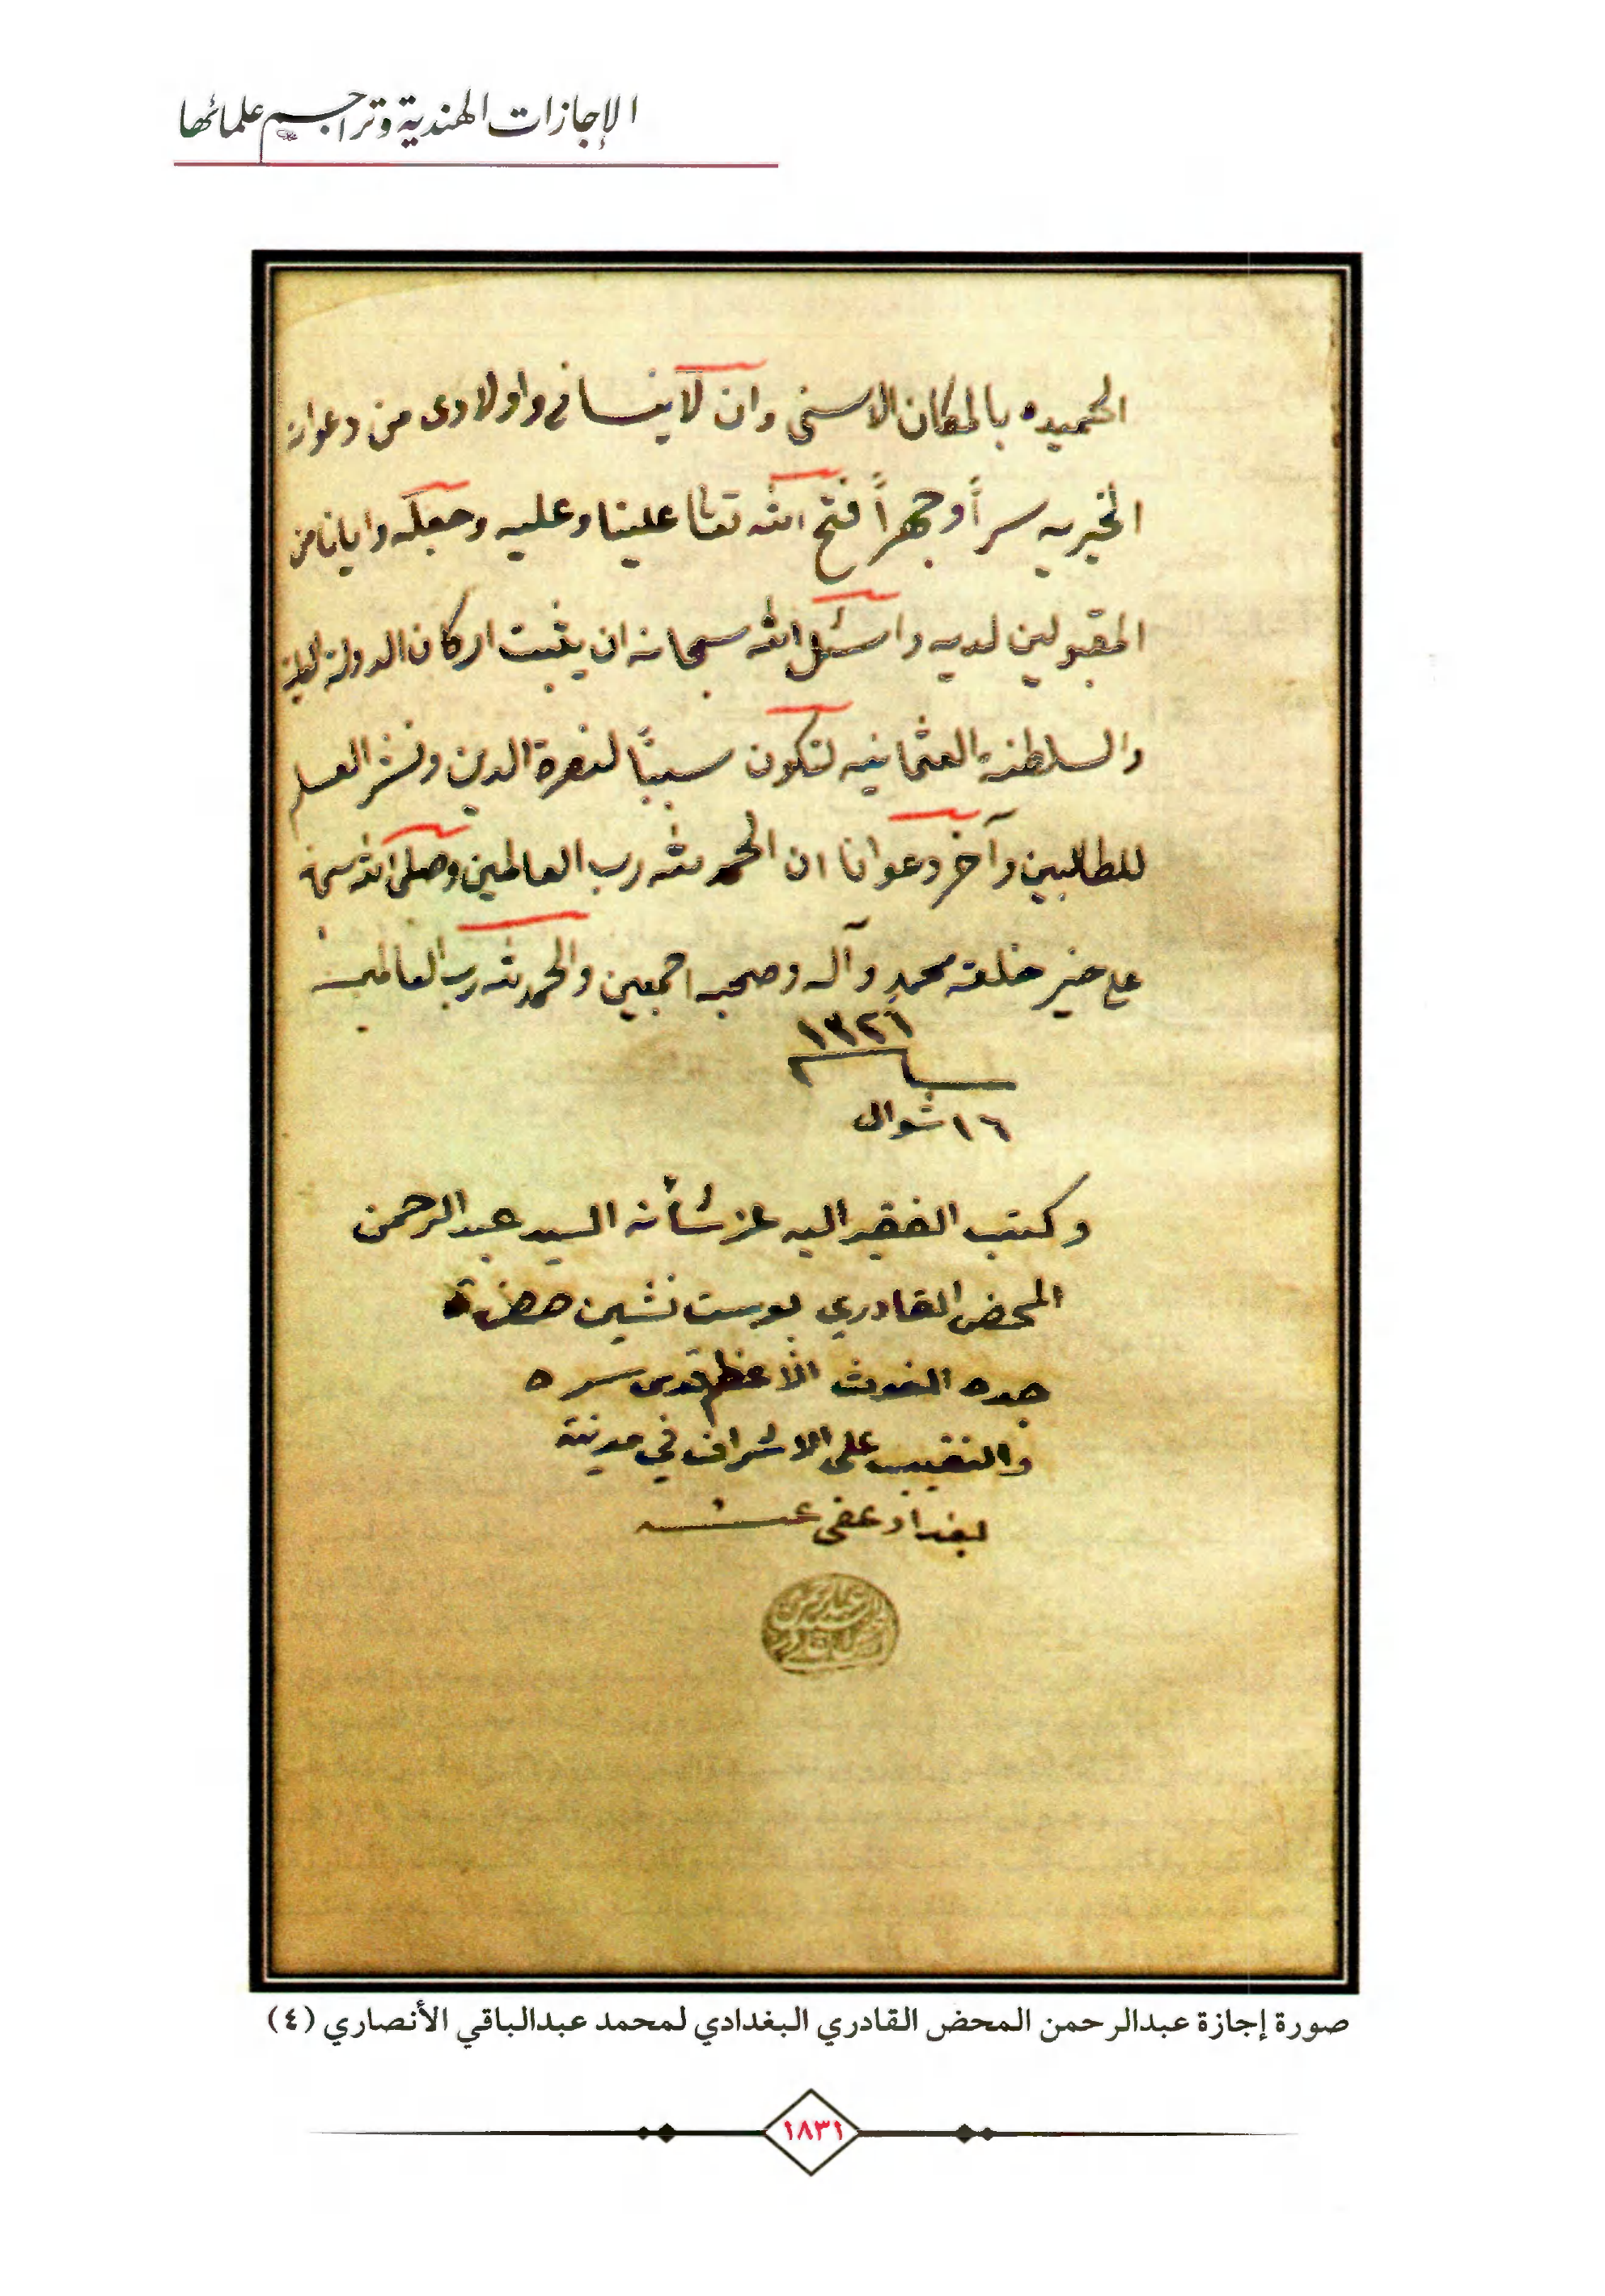 الإجازات الهندية وتراجم علمائها
الحميده بالمكان الاسنى وان لا ينسانى واولادى من دعواته
الخيريه سراً وجهراً فتح الله تعالى علينا وعليه وجعله وايانا من
المقبولين لديه واسئل الله سبحانه ان يثبت اركان الدولة العلية
والسلطنة العثمانيه لتكون سبباً لنصرة الدين ونشر العلم
للطالبين وآخر دعوانا ان الحمد لله رب العالمين وصلى الله سبحانه
على خير خلقه محمد وآله وصحبه اجمعين والحمد لله رب العالمين
١٣٢٦
١٦ شوال
وكتب الفقير اليه عز شأنه السيد عبد الرحمن
المحض القادري پوست نشين حضرة
جده الغوث الأعظم قدس سره
والنقيب على الاشراف في مدينة
بغداد عفى عنه
صورة إجازة عبدالرحمن المحض القادري البغدادي لمحمد عبدالباقي الأنصاري (٤)
١٨٣١